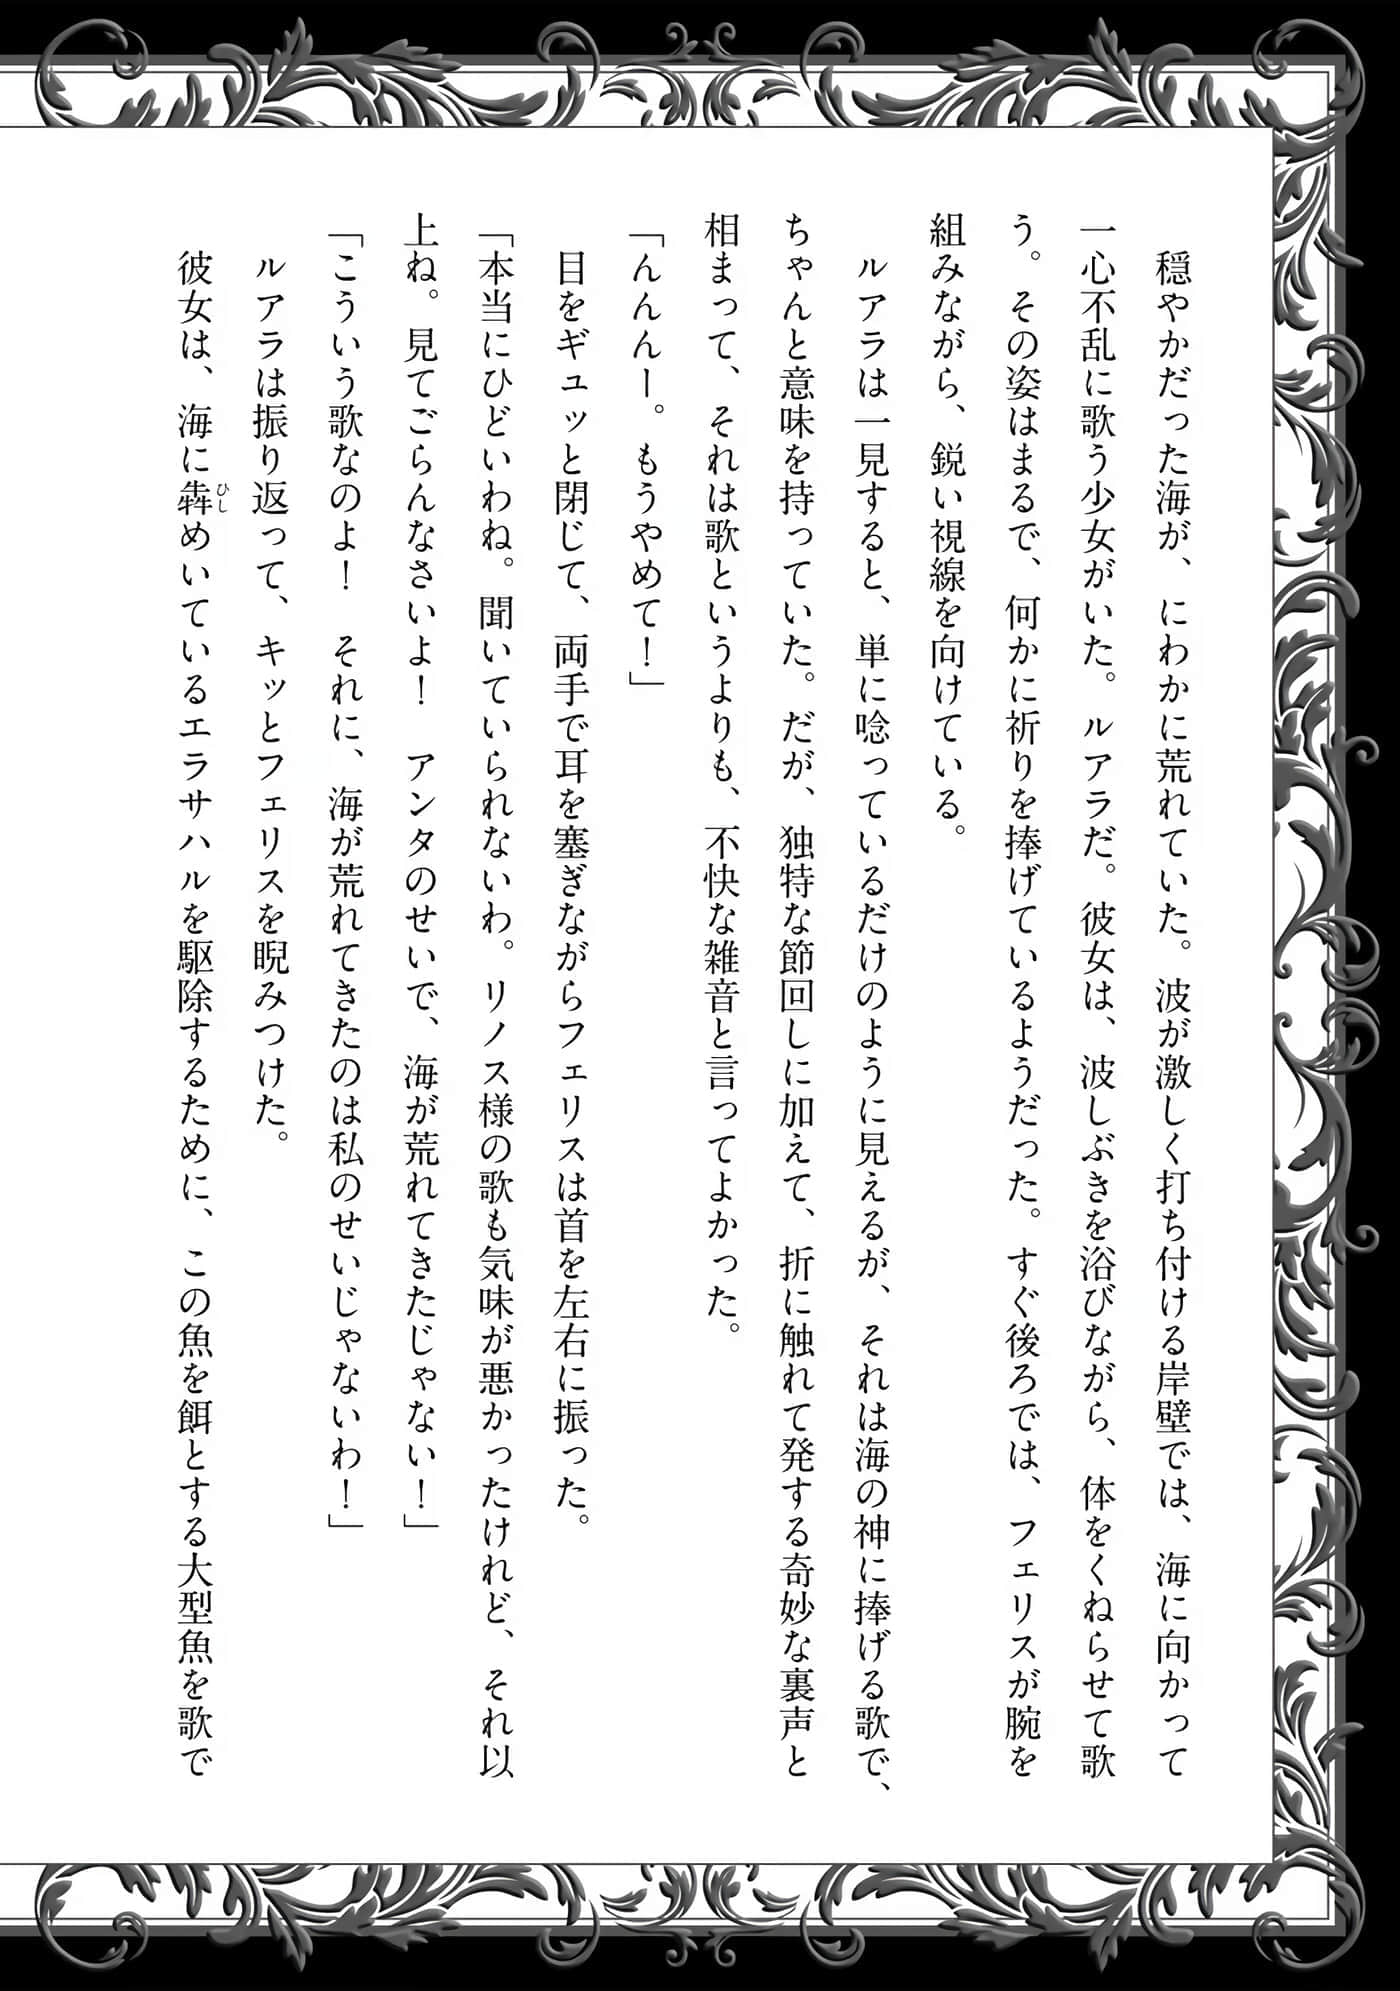 穏やかだった海が、にわかに荒れていた。波が激しく打ち付ける岸壁では、海に向かって
一心不乱に歌う少女がいた。ルアラだ。彼女は、波しぶきを浴びながら、体をくねらせて歌
う。その姿はまるで、何かに祈りを捧げているようだった。すぐ後ろでは、フェリスが腕を
組みながら、鋭い視線を向けている。
ルアラは一見すると、単に唸っているだけのように見えるが、それは海の神に捧げる歌で、
ちゃんと意味を持っていた。だが、独特な節回しに加えて、折に触れて発する奇妙な裏声と
相まって、それは歌というよりも、不快な雑音と言ってよかった。
「んんんー。もうやめて！」
目をギュッと閉じて、両手で耳を塞ぎながらフェリスは首を左右に振った。
「本当にひどいわね。聞いていられないわ。リノス様の歌も気味が悪かったけれど、それ以
上ね。見てごらんなさいよ！　アンタのせいで、海が荒れてきたじゃない！」
「こういう歌なのよ！　それに、海が荒れてきたのは私のせいじゃないわ！」
ルアラは振り返って、キッとフェリスを睨みつけた。
彼女は、海に犇ひしめいているエラサハルを駆除するために、この魚を餌とする大型魚を歌で